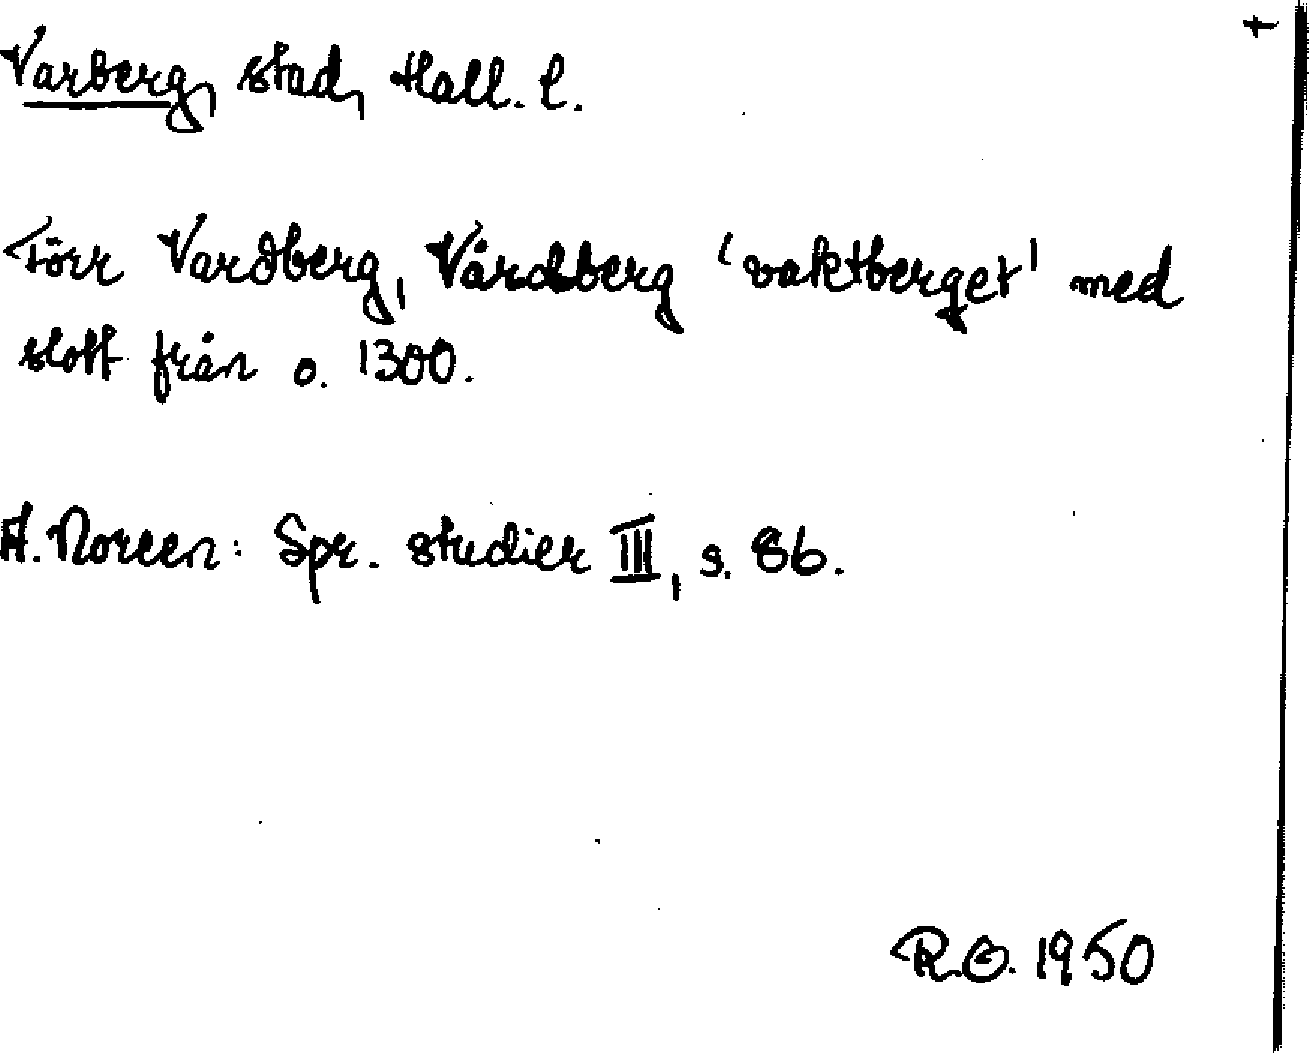 Varberg, stad, Hall. l.
Förr Vardberg, Vårdberg 'vaktberget' med
slott från o. 1300.
A. Noreen: Spr. studier III, s. 86.
R.O. 1950